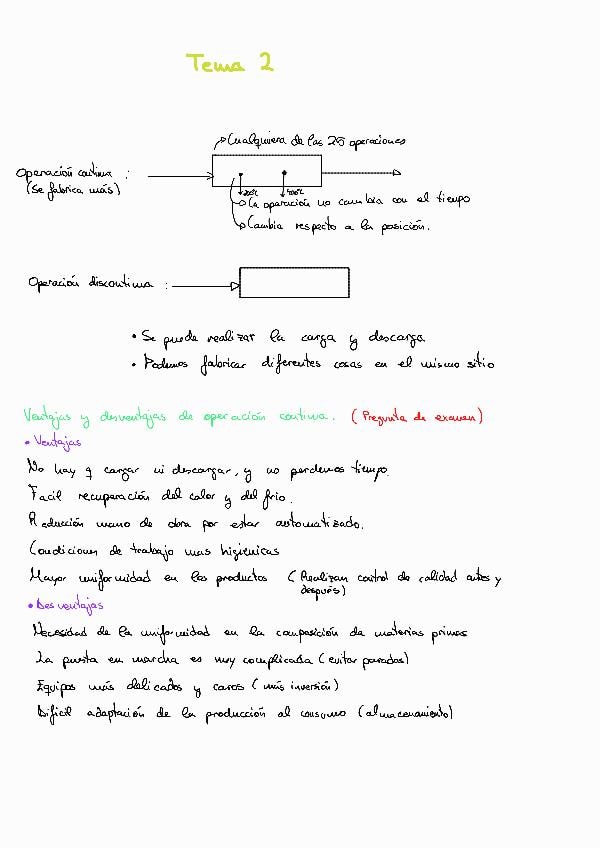 Tema 2
Cualquiera de las 25 operaciones
Operación continua :
(Se fabrica más)
La operación no cambia con el tiempo
Cambia respecto a la posición.
Operación discontinua :
• Se puede realizar la carga y descarga
• Podemos fabricar diferentes cosas en el mismo sitio
Ventajas y desventajas de operación continua. (Pregunta de examen)
• Ventajas
No hay q cargar ni descargar, y no perdemos tiempo.
Facil recuperación del calor y del frio.
Reducción mano de obra por estar automatizado.
Condiciones de trabajo mas higienicas
Mayor uniformidad en los productos (Realizan control de calidad antes y
después)
• Desventajas
Necesidad de la uniformidad en la composición de materias primas
La puesta en marcha es muy complicada (evitar paradas)
Equipos más delicados y caros (más inversión)
Dificil adaptación de la producción al consumo (almacenamiento)